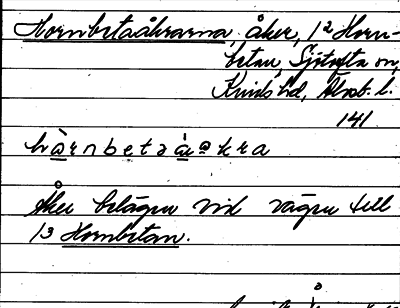 Hornbetaåkrarna, åker, 1² Horn-
betan, Sjötofta sn,
Kinds hd, Älvsb. l.
141
hò̱rnbeta å̱ʷkra
Åker belägen vid vägen till
13 Hornbetan.